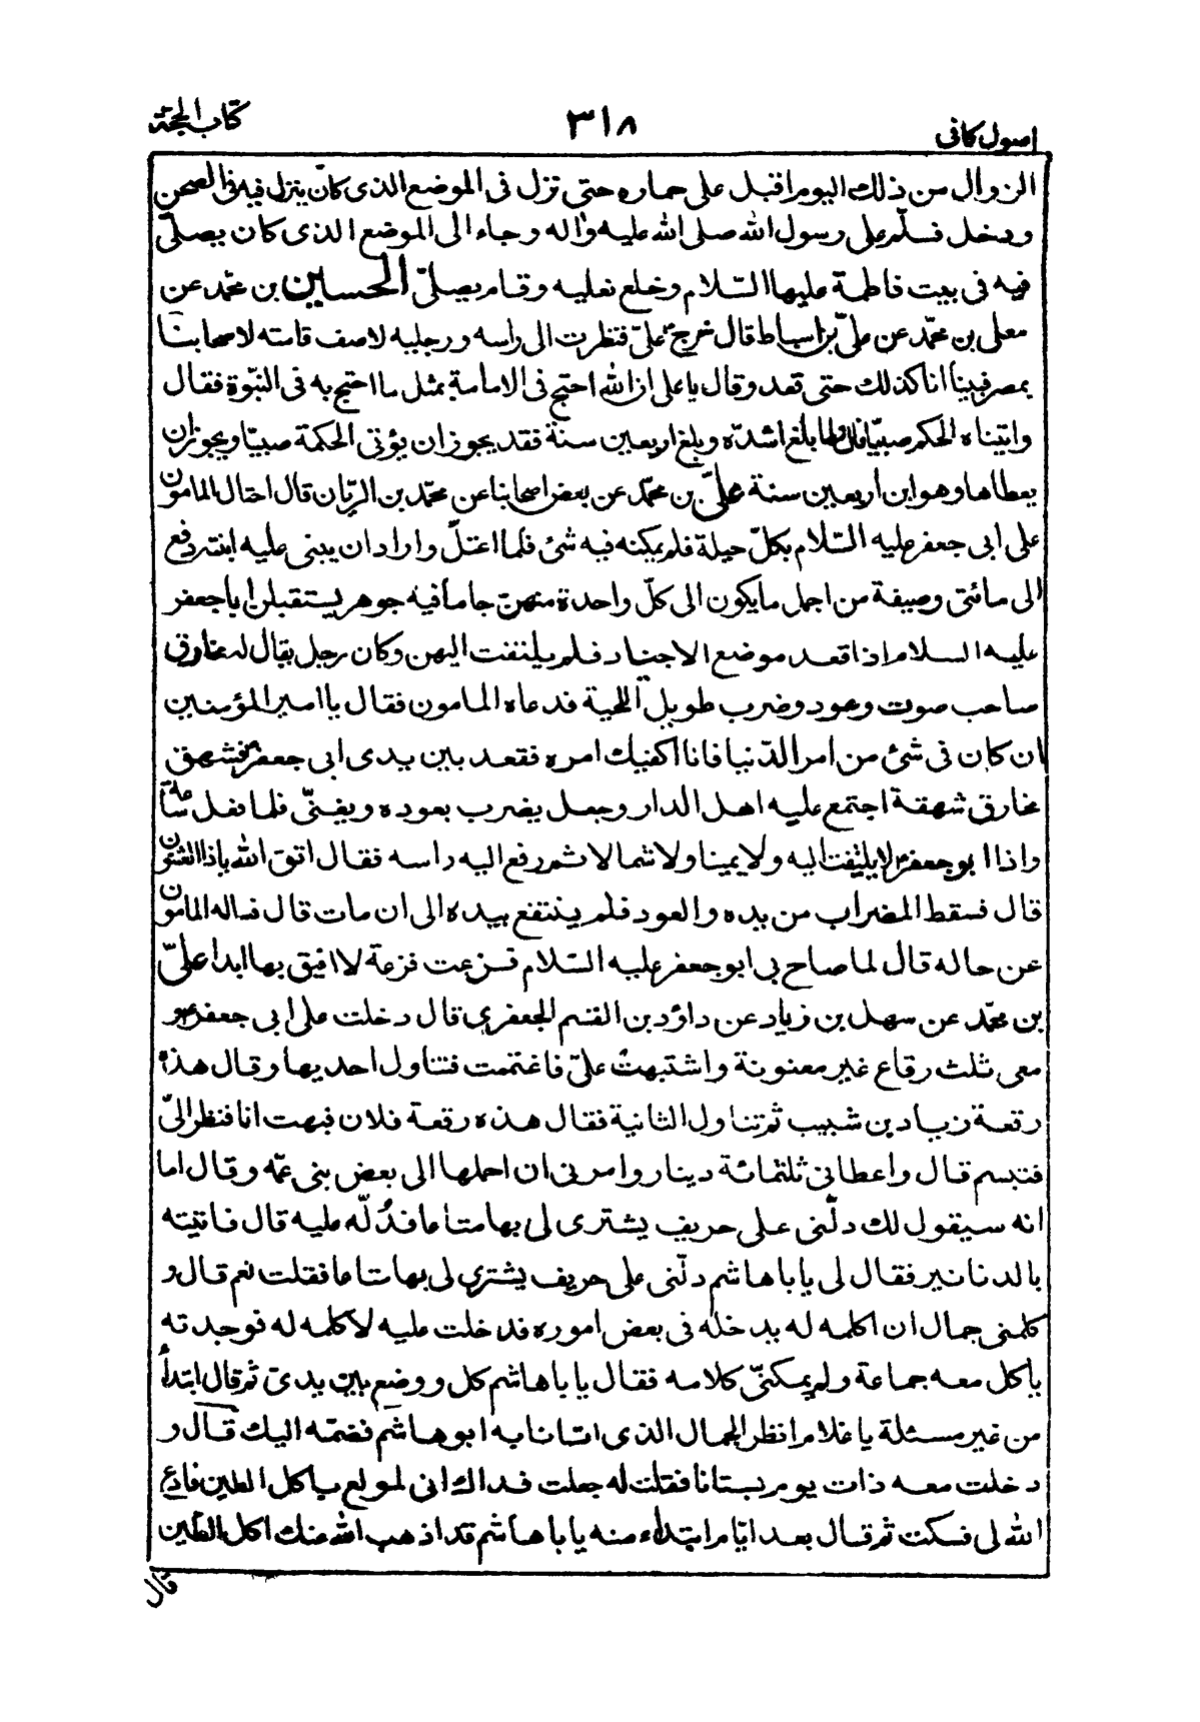 اصول كافى ٣١٨ كتاب الحجّة
الزوال من ذلك اليوم اقبل على حماره حتى نزل فى الموضع الذى كان ينزل فيه فى الصحن
ودخل فسلّم على رسول الله صلى الله عليه واله وجاء الى الموضع الذى كان يصلّى
فيه فى بيت فاطمة عليها السّلام وخلع نعليه وقام يصلّى الحسين بن محمّد عن
معلى بن محمّد عن علىّ بن اسباط قال خرج ع علىّ فنظرت الى راسه ورجليه لاصف قامته لاصحابنا
بمصر فبينا انا كذلك حتى قعد وقال يا على ان الله احتج فى الامامة بمثل ما احتج به فى النبّوة فقال
واتيناه الحكم صبيّا قال ولما بلغ اشدّه وبلغ اربعين سنة فقد يجوز ان يؤتى الحكمة صبيّا ويجوز ان
يعطاها وهو ابن اربعين سنة علىّ بن محمّد عن بعض اصحابنا عن محمّد بن الريّان قال احتال المامون
على ابى جعفر عليه السّلام بكلّ حيلة فلم يمكنه فيه شئ فلما اعتلّ واراد ان يبنى عليه ابنته دفع
الى مائتى وصيفة من اجمل ما يكون الى كلّ واحدة منهنّ جاما فيه جوهر يستقبلن ابا جعفر
عليه السلام اذا قعد موضع الاجناد فلم يلتفت اليهن وكان رجل يقال له مخارق
صاحب صوت وعود وضرب طويل اللحية فدعاه المامون فقال يا امير المؤمنين
ان كان فى شئ من امر الدّنيا فانا اكفيك امره فقعد بين يدى ابى جعفر ع فشهق
مخارق شهقة اجتمع عليه اهل الدار وجعل يضرب بعوده ويغنّى فلما فعل ساعة
واذا ابو جعفر ع لا يلتفت اليه ولا يمينا ولا شمالا ثم رفع اليه راسه فقال اتق الله يا ذا العثنون
قال فسقط المضراب من يده والعود فلم ينتفع بيده الى ان مات قال فساله المامون
عن حاله قال لما صاح بى ابو جعفر عليه السّلام فزعت فزعة لا افيق بها ابدا علىّ
بن محمّد عن سهل بن زياد عن داؤد بن القسم الجعفرى قال دخلت على ابى جعفر ع و
معى ثلث رقاع غير معنونة واشتبهت علىّ فاغتممت فتناول احديها وقال هذه
رقعة زياد بن شبيب ثم تناول الثانية فقال هذه رقعة فلان فبهت انا فنظر الىّ
فتبسم قال واعطانى ثلثمائة دينار وامرنى ان احملها الى بعض بنى عمّه وقال اما
انه سيقول لك دلّنى على حريف يشترى لى بها متاعا فدُلّه عليه قال فاتيته
بالدنانير فقال لى يا با هاشم دلّنى على حريف يشترى لى بها متاعا فقلت نعم قال و
كلمنى جمال ان اكلمه له يدخله فى بعض اموره فدخلت عليه لاكلمه له فوجدته
ياكل معه جماعة ولم يمكنّى كلامه فقال يا با هاشم كل ووضع بين يدىّ ثم قال ابتداءً
من غير مسئلة يا غلام انظر الجمال الذى اتانا به ابو هاشم فضمّه اليك قال و
دخلت معه ذات يوم بستانا فقلت له جعلت فداك انى لمولع باكل الطين فادع
الله لى فسكت ثم قال بعد ايّام ابتداء منه يا با هاشم قد اذهب الله عنك اكل الطين
قال